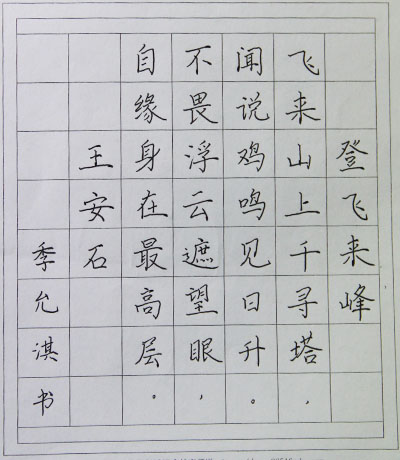 登飞来峰
飞来山上千寻塔，
闻说鸡鸣见日升。
不畏浮云遮望眼，
自缘身在最高层。
王安石
季允淇书